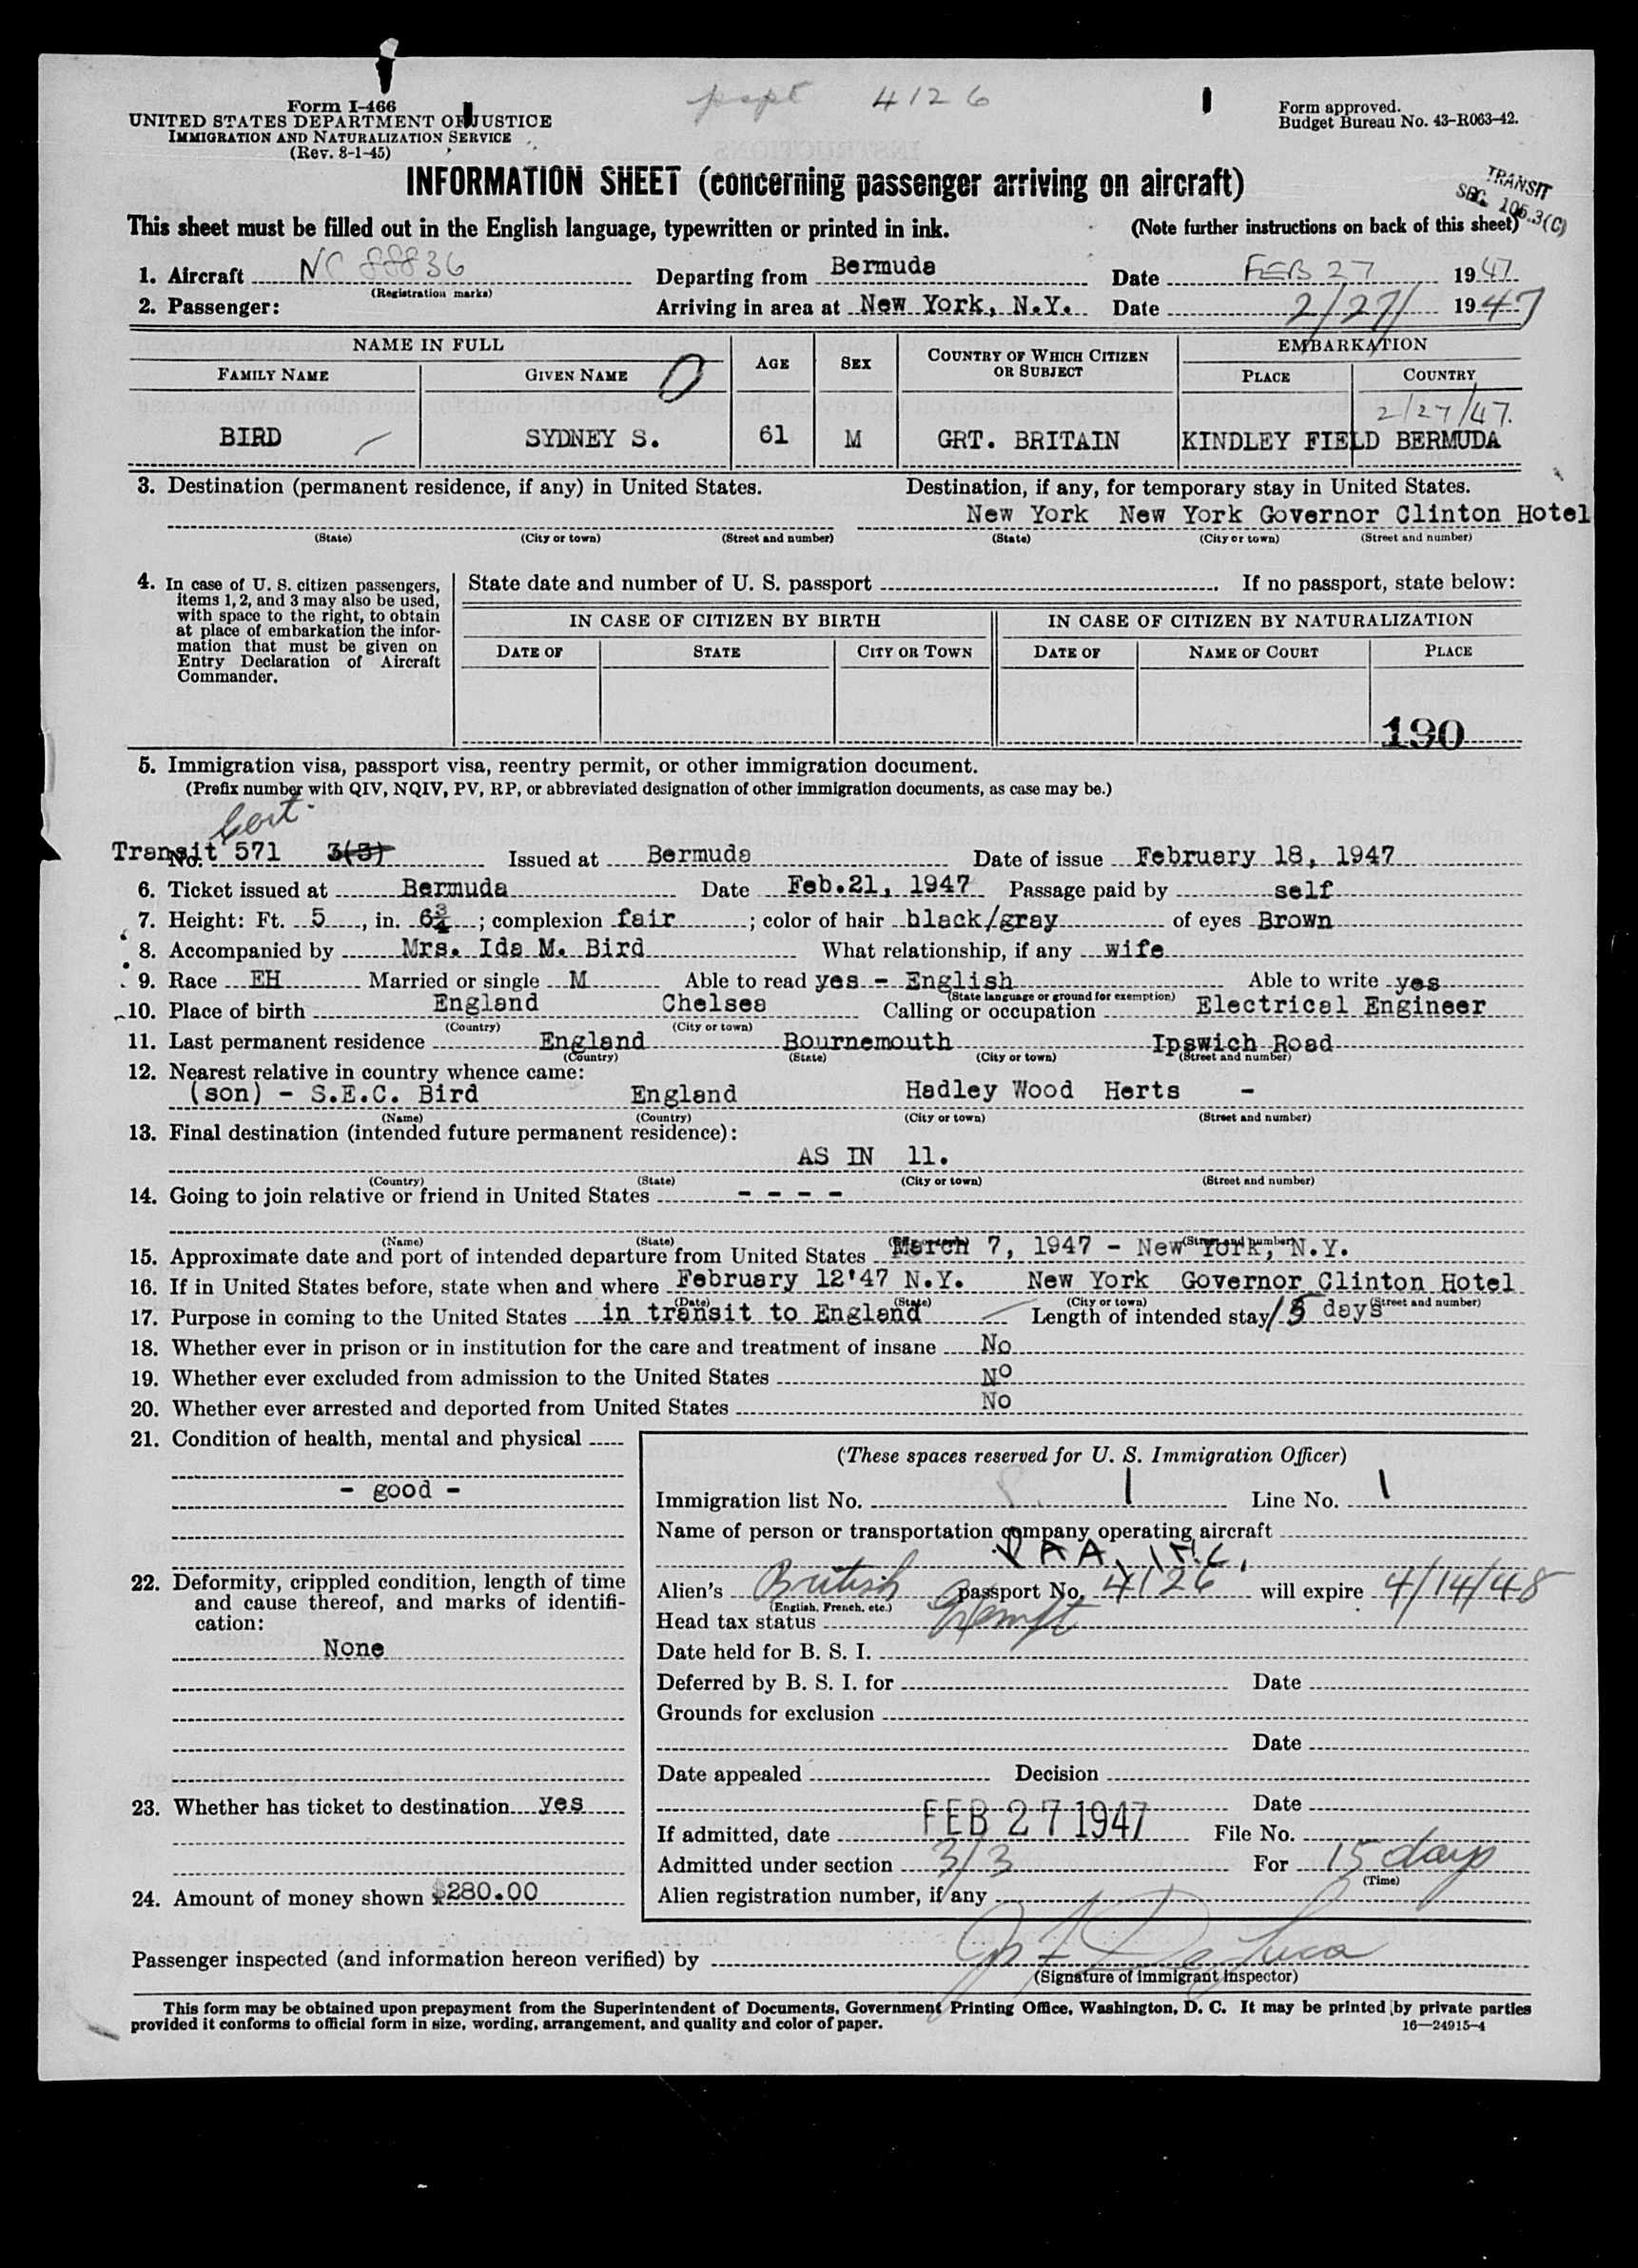 pspt 4126
Form I-466
UNITED STATES DEPARTMENT OF JUSTICE
IMMIGRATION AND NATURALIZATION SERVICE
(Rev. 8-1-45)
Form approved.
Budget Bureau No. 43-R063-42.
INFORMATION SHEET (concerning passenger arriving on aircraft)
TRANSIT
SEC. 105.3(C)
This sheet must be filled out in the English language, typewritten or printed in ink. (Note further instructions on back of this sheet)
1. Aircraft NC 88836 Departing from Bermuda Date FEB 27 1947
(Registration marks)
2. Passenger: Arriving in area at New York, N.Y. Date 2/27/ 1947
NAME IN FULL AGE SEX COUNTRY OF WHICH CITIZEN OR SUBJECT EMBARKATION
FAMILY NAME GIVEN NAME PLACE COUNTRY
2/27/47.
BIRD SYDNEY S. 61 M GRT. BRITAIN KINDLEY FIELD BERMUDA
3. Destination (permanent residence, if any) in United States. Destination, if any, for temporary stay in United States.
New York New York Governor Clinton Hotel
(State) (City or town) (Street and number) (State) (City or town) (Street and number)
4. In case of U. S. citizen passengers, items 1, 2, and 3 may also be used, with space to the right, to obtain at place of embarkation the information that must be given on Entry Declaration of Aircraft Commander.
State date and number of U. S. passport . If no passport, state below:
IN CASE OF CITIZEN BY BIRTH IN CASE OF CITIZEN BY NATURALIZATION
DATE OF STATE CITY OR TOWN DATE OF NAME OF COURT PLACE
190
5. Immigration visa, passport visa, reentry permit, or other immigration document.
(Prefix number with QIV, NQIV, PV, RP, or abbreviated designation of other immigration documents, as case may be.)
Cert.
Transit No. 571 3(3) Issued at Bermuda Date of issue February 18, 1947
6. Ticket issued at Bermuda Date Feb.21, 1947 Passage paid by self
7. Height: Ft. 5, in. 6¾; complexion fair; color of hair black/gray of eyes Brown
8. Accompanied by Mrs. Ida M. Bird What relationship, if any wife
9. Race EH Married or single M Able to read yes - English Able to write yes
(State language or ground for exemption)
10. Place of birth England Chelsea Calling or occupation Electrical Engineer
(Country) (City or town)
11. Last permanent residence England Bournemouth Ipswich Road
(Country) (State) (City or town) (Street and number)
12. Nearest relative in country whence came:
(son) - S.E.C. Bird England Hadley Wood Herts -
(Name) (Country) (City or town) (Street and number)
13. Final destination (intended future permanent residence):
AS IN 11.
(Country) (State) (City or town) (Street and number)
14. Going to join relative or friend in United States - - - -
(Name) (State) (City or town) (Street and number)
15. Approximate date and port of intended departure from United States March 7, 1947 - New York, N.Y.
16. If in United States before, state when and where February 12'47 N.Y. New York Governor Clinton Hotel
(Date) (State) (City or town) (Street and number)
17. Purpose in coming to the United States in transit to England Length of intended stay 15 days
18. Whether ever in prison or in institution for the care and treatment of insane No
19. Whether ever excluded from admission to the United States No
20. Whether ever arrested and deported from United States No
21. Condition of health, mental and physical
- good -
22. Deformity, crippled condition, length of time and cause thereof, and marks of identification:
None
23. Whether has ticket to destination yes
24. Amount of money shown $280.00
(These spaces reserved for U. S. Immigration Officer)
Immigration list No. 1 Line No. 1
Name of person or transportation company operating aircraft
PAA, INC.
Alien's British passport No. 4126 will expire 4/14/48
(English, French, etc.)
Head tax status Exempt
Date held for B. S. I.
Deferred by B. S. I. for Date
Grounds for exclusion
Date
Date appealed Decision
Date
If admitted, date FEB 27 1947 File No.
Admitted under section 3/3 For 15 days
(Time)
Alien registration number, if any
Passenger inspected (and information hereon verified) by
(Signature of immigrant inspector)
This form may be obtained upon prepayment from the Superintendent of Documents, Government Printing Office, Washington, D. C. It may be printed by private parties
provided it conforms to official form in size, wording, arrangement, and quality and color of paper. 16—24915-4